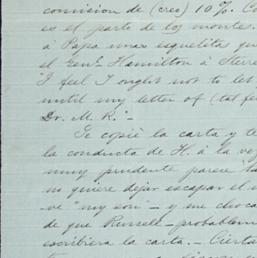 comision de (creo) 10%. Co
es el parto de los montes.
á Papa unas esquelitas que
el Genl. Hamilton á Sierra
"I feel I ought not to let
until my letter of (tal fe
Dr. M. R."-
Se copié la carta y te
la conducta de H. á la ve
muy prudente parece
no quiere dejar escapar el
ve "my son" - y me choca
de que Russell - probablem
escribiera la carta. - Cierta